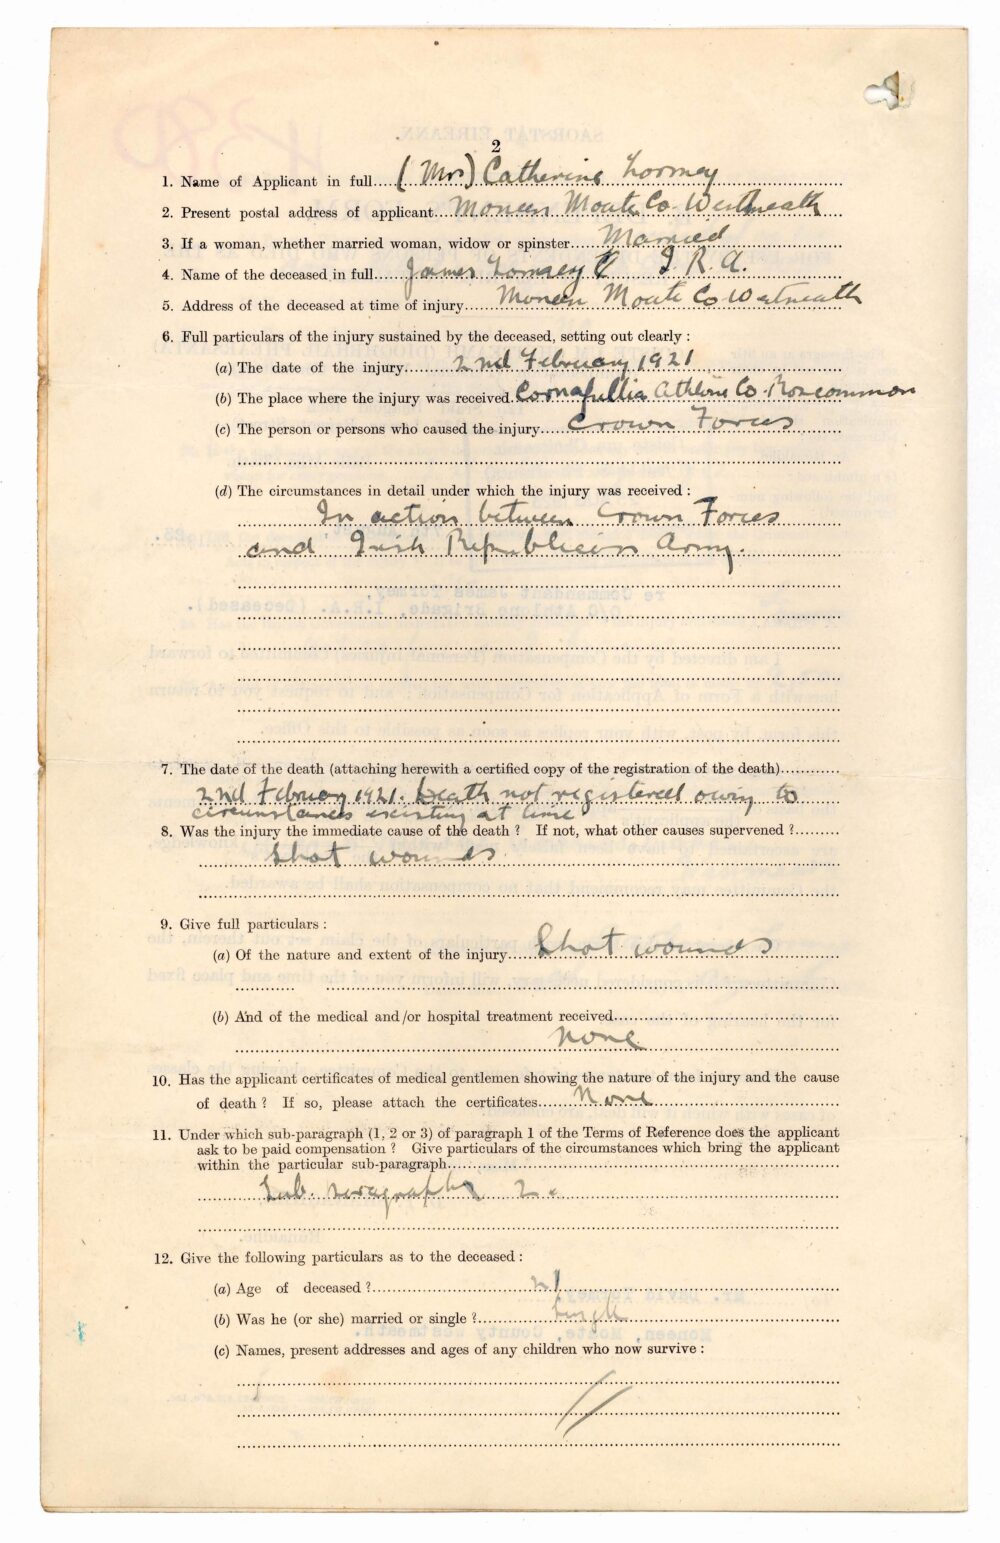 2
1. Name of Applicant in full....(Mrs) Catherine Tormey
2. Present postal address of applicant...Moneen Moate Co. Westmeath
3. If a woman, whether married woman, widow or spinster....Married
4. Name of the deceased in full....James Tormey I. R. A.
5. Address of the deceased at time of injury....Moneen Moate Co Westmeath
6. Full particulars of the injury sustained by the deceased, setting out clearly :
(a) The date of the injury....2nd February 1921
(b) The place where the injury was received. Cornafullia Athlone Co. Roscommon
(c) The person or persons who caused the injury....Crown Forces
(d) The circumstances in detail under which the injury was received :
In action between Crown Forces
and Irish Republican Army.
7. The date of the death (attaching herewith a certified copy of the registration of the death)....
2nd February 1921. Death not registered owing to
circumstances existing at time
8. Was the injury the immediate cause of the death ? If not, what other causes supervened ?....
Shot wounds
9. Give full particulars :
(a) Of the nature and extent of the injury....Shot wounds
(b) And of the medical and/or hospital treatment received....
None
10. Has the applicant certificates of medical gentlemen showing the nature of the injury and the cause
of death ? If so, please attach the certificates....None
11. Under which sub-paragraph (1, 2 or 3) of paragraph 1 of the Terms of Reference does the applicant
ask to be paid compensation ? Give particulars of the circumstances which bring the applicant
within the particular sub-paragraph....
Sub. paragraph 2.
12. Give the following particulars as to the deceased :
(a) Age of deceased ?....21
(b) Was he (or she) married or single ?....Single
(c) Names, present addresses and ages of any children who now survive :